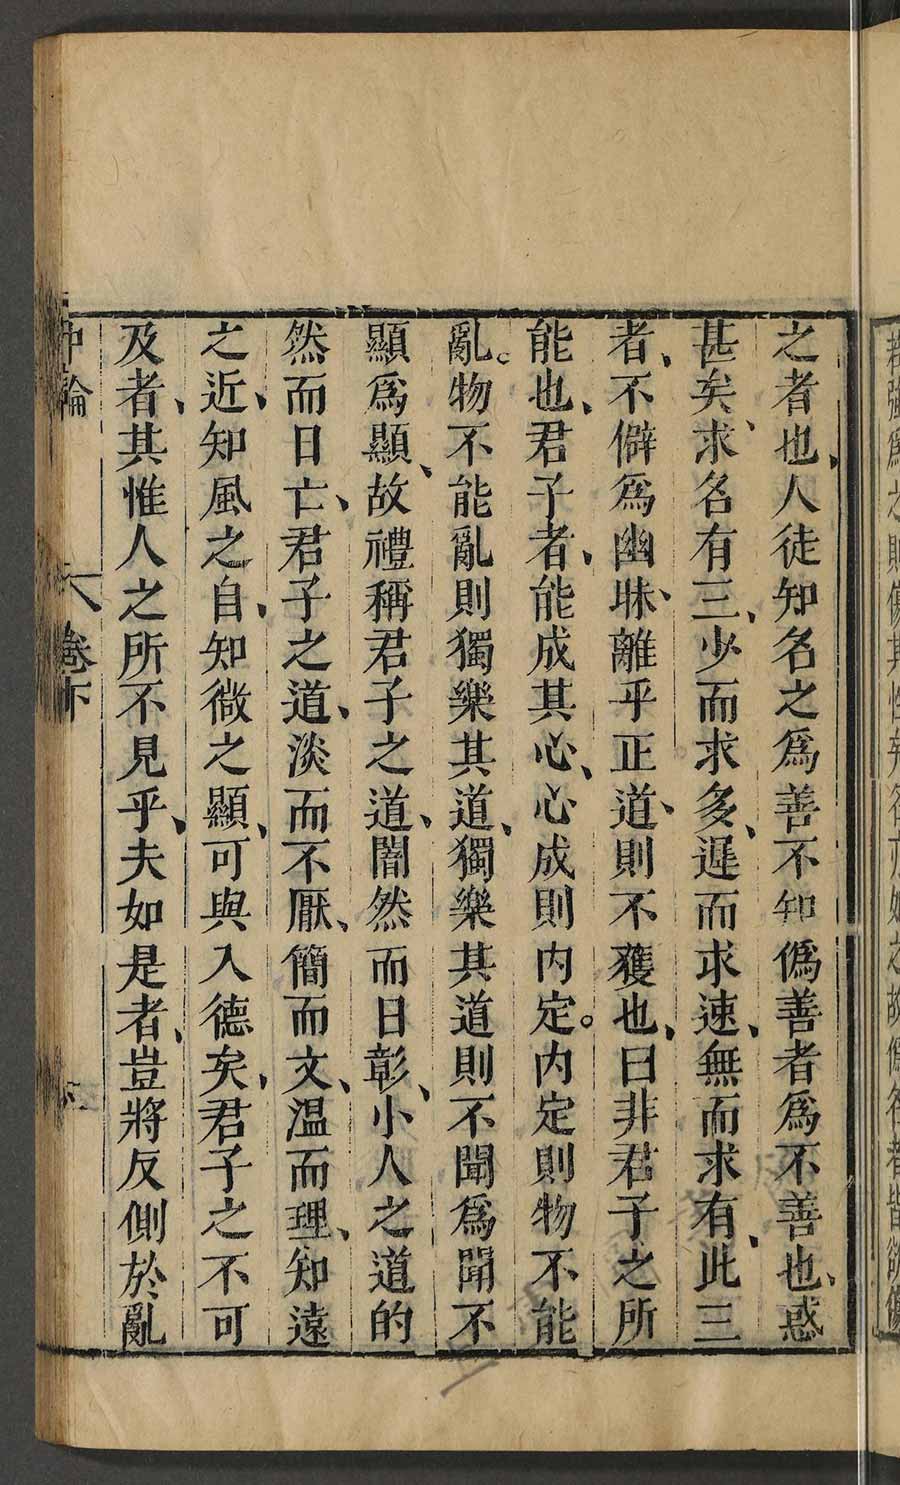 之者也、人徒知名之爲善不知僞善者爲不善也、惑
甚矣、求名有三、少而求多、遲而求速、無而求有、此三
者、不僻爲幽昧、離乎正道、則不獲也、曰非君子之所
能也、君子者、能成其心、心成則内定。内定則物不能
亂。物不能亂則獨樂其道、獨樂其道則不聞爲聞不
顯爲顯、故禮稱君子之道、闇然而日彰、小人之道的
然而日亡、君子之道、淡而不厭、簡而文、温而理、知遠
之近、知風之自、知微之顯、可與入德矣、君子之不可
及者、其惟人之所不見乎、夫如是者、豈將反側於亂
中論
卷下